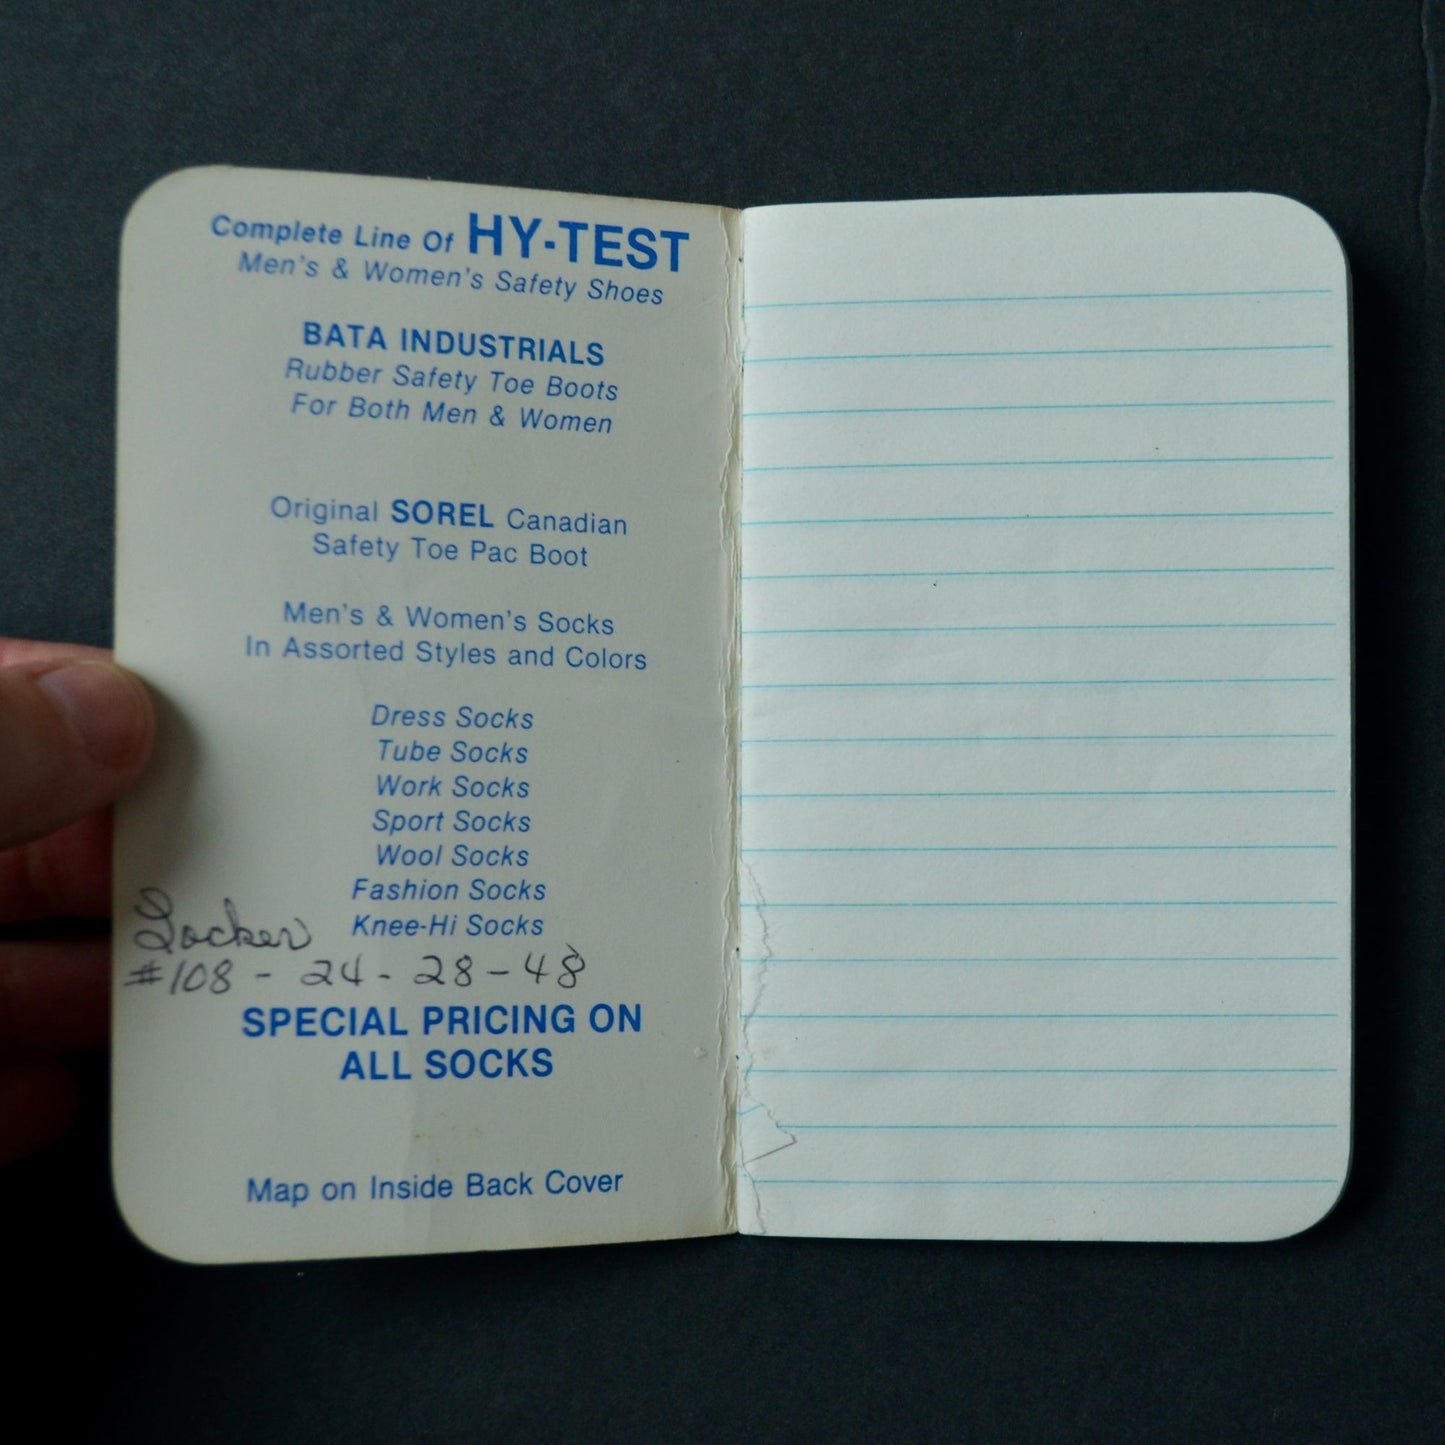 Complete Line Of HY-TEST
Men's & Women's Safety Shoes
BATA INDUSTRIALS
Rubber Safety Toe Boots
For Both Men & Women
Original SOREL Canadian
Safety Toe Pac Boot
Men's & Women's Socks
In Assorted Styles and Colors
Dress Socks
Tube Socks
Work Socks
Sport Socks
Wool Socks
Fashion Socks
Knee-Hi Socks
Locker
#108 - 24 - 28 - 48
SPECIAL PRICING ON
ALL SOCKS
Map on Inside Back Cover